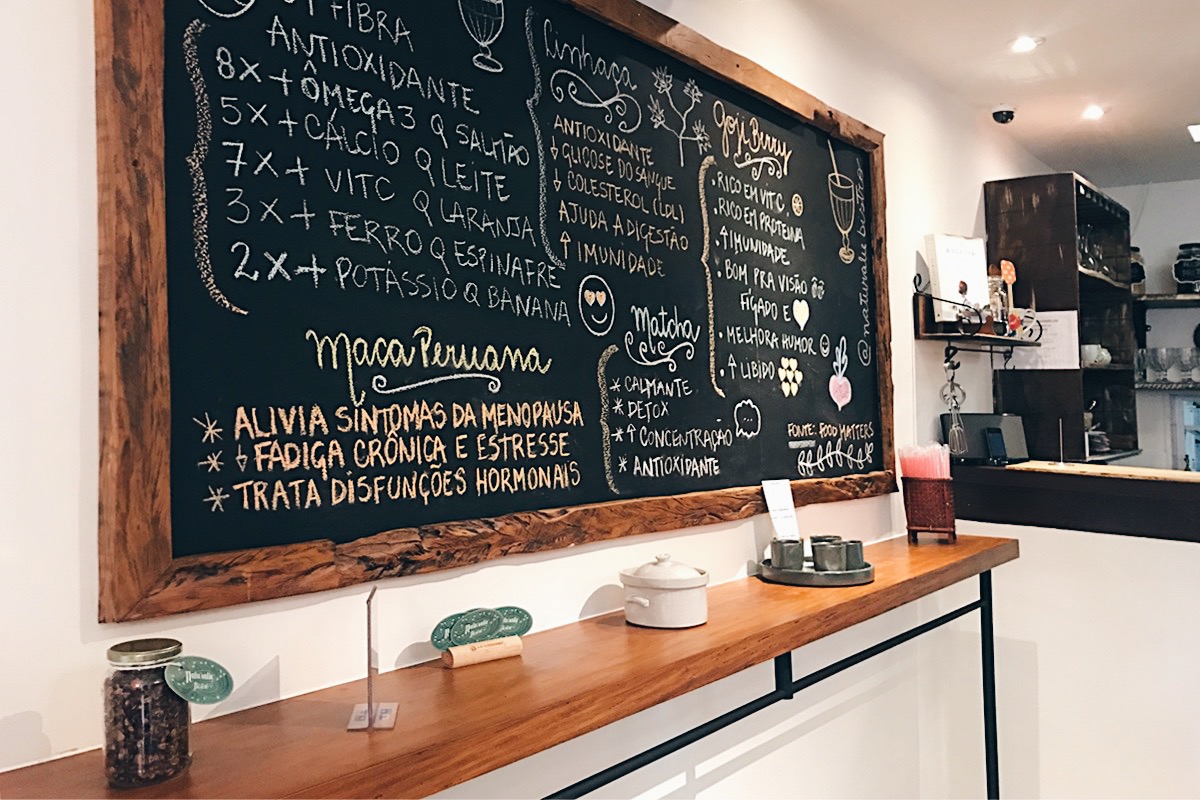 FIBRA
ANTIOXIDANTE
8X + ÔMEGA 3 Q SALMÃO
5X + CÁLCIO Q LEITE
7X + VITC Q LARANJA
3X + FERRO Q ESPINAFRE
2X + POTÁSSIO Q BANANA
Maca Peruana
* ALIVIA SINTOMAS DA MENOPAUSA
* ↓ FADIGA CRÔNICA E ESTRESSE
* TRATA DISFUNÇÕES HORMONAIS
Linhaça
ANTIOXIDANTE
↓ GLICOSE DO SANGUE
↓ COLESTEROL (LDL)
AJUDA A DIGESTÃO
↑ IMUNIDADE
Matcha
* CALMANTE
* DETOX
* ↑ CONCENTRAÇÃO
* ANTIOXIDANTE
Goji Berry
• RICO EM VIT C
• RICO EM PROTEÍNA
• ↑ IMUNIDADE
• BOM PRA VISÃO
FÍGADO E
• MELHORA HUMOR
• ↑ LIBIDO
FONTE: FOOD MATTERS
@naturalie bistro
Naturalie
Bistrô